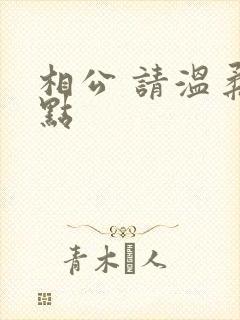 相公 請溫柔
點
青木人